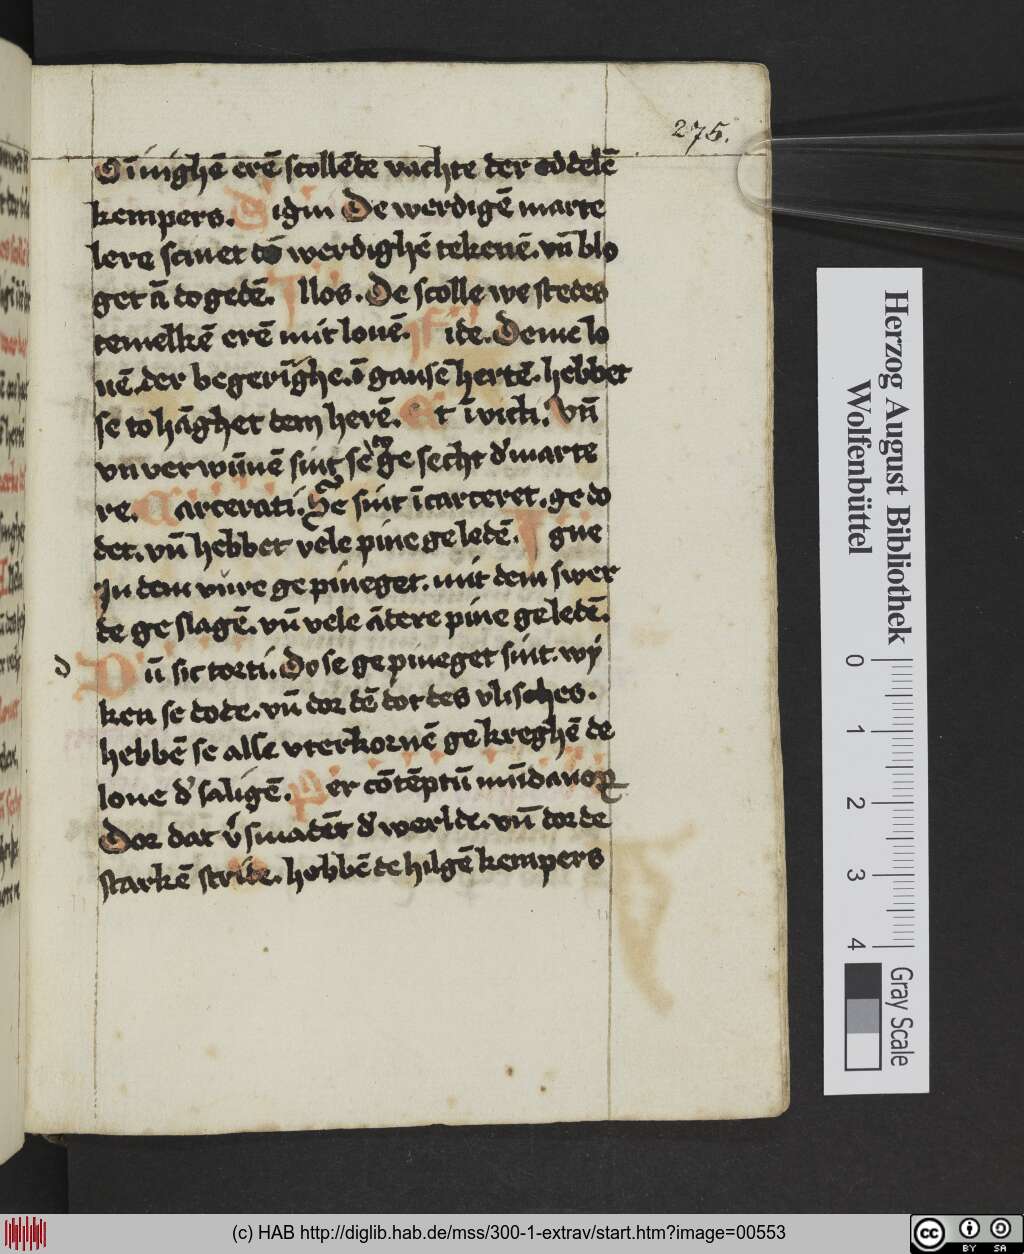 275.
O inighē erē scollēde vachte der eddelē
kempers. Signi De werdigē marte
lere scinet to werdighē tekenē. vn̄ blo
get ā dogedē. Illos. De scolle we stedes
temelkē erē mit louē. ide. Deme lo
uē. der begerīghe. ī gansē hertē. hebbet
se to hāghet dem herē. Et īuicti. Vn̄
vnverwūnē sint se ge secht d' marte
re. Carcerati. Se sint ī carceret. ge do
det. vn̄ hebbet vele pine geledē. Igne
In dem vure ge pineget. mit dem swer
de ge slagē. vn̄ vele ādere pine geledē.
d Dū sic torti. Do se ge pineget sint. wy
ken se dode. vn̄ dor dē dot des vlisches.
hebbē se alse vterkornē gekreghē de
lone d' saligē. Per cōtēptū mūdanoꝝ
Dor dat v'smadēt d' werlde. vn̄ dor de
starkē stride. hebbē de hilgē kempers
Herzog August Bibliothek
Wolfenbüttel
0 1 2 3 4
Gray Scale
(c) HAB http://diglib.hab.de/mss/300-1-extrav/start.htm?image=00553
cc BY SA